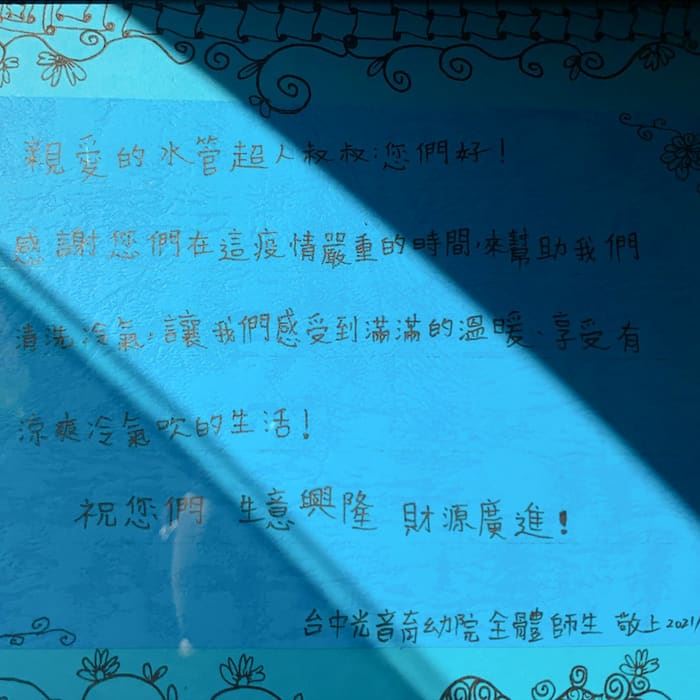 親愛的水管超人叔叔:您們好!
感謝您們在這疫情嚴重的時間,來幫助我們
清洗冷氣,讓我們感受到滿滿的溫暖、享受有
涼爽冷氣吹的生活!
祝您們 生意興隆 財源廣進!
台中光音育幼院全體師生 敬上 2021/